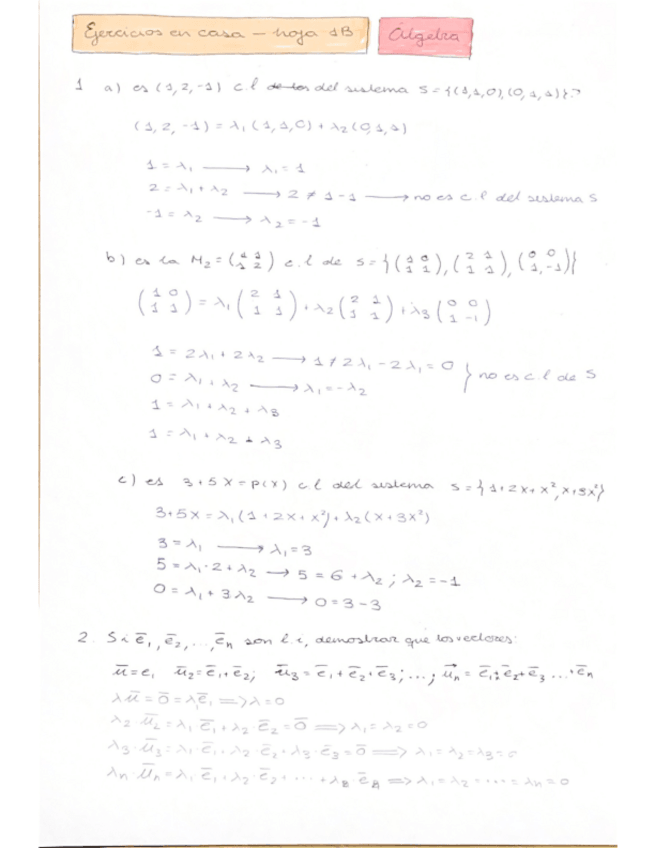 Ejercicios en casa — hoja 1B Álgebra
1 a) es (1, 2, -1) c.l del sistema S = {(1,1,0),(0,1,1)}?
(1, 2, -1) = λ₁(1,1,0) + λ₂(0,1,1)
1 = λ₁ ⟶ λ₁ = 1
2 = λ₁ + λ₂ ⟶ 2 ≠ 1 - 1 ⟶ no es c.l del sistema S
-1 = λ₂ ⟶ λ₂ = -1
b) es la M₂ = (1 2) c.l de S = {(1 1), (2 1 1 1), (0 0 1, -1)}
(1 0 1 1) = λ₁(2 1 1 1) + λ₂(2 1 1 1) + λ₃(0 0 1 -1)
1 = 2λ₁ + 2λ₂ ⟶ 1 ≠ 2λ₁ - 2λ₁ = 0
0 = λ₁ + λ₂ ⟶ λ₁ = -λ₂ } no es c.l de S
1 = λ₁ + λ₂ + λ₃
1 = λ₁ + λ₂ + λ₃
c) es 3 + 5x = P(x) c.l del sistema S = {1 + 2x + x², x + 3x²}
3 + 5x = λ₁(1 + 2x + x²) + λ₂(x + 3x²)
3 = λ₁ ⟶ λ₁ = 3
5 = λ₁·2 + λ₂ ⟶ 5 = 6 + λ₂ ; λ₂ = -1
0 = λ₁ + 3λ₂ ⟶ 0 = 3 - 3
2. Si e̅₁, e̅₂, ..., e̅n son l.i, demostrar que los vectores:
u̅ = e₁ u̅₂ = e̅₁ + e̅₂; u̅₃ = e̅₁ + e̅₂ + e̅₃; ...; u̅n = e̅₁ + e̅₂ + e̅₃ ... + e̅n
λu̅ = 0̅ = λe̅₁ ⟹ λ = 0
λ₂·u̅₂ = λ₁·e̅₁ + λ₂·e̅₂ = 0̅ ⟹ λ₁ = λ₂ = 0
λ₃·u̅₃ = λ₁·e̅₁ + λ₂·e̅₂ + λ₃·e̅₃ = 0̅ ⟹ λ₁ = λ₂ = λ₃ = 0
λn·u̅n = λ₁·e̅₁ + λ₂·e̅₂ + ... + λn·e̅n ⟹ λ₁ = λ₂ = ... = λn = 0